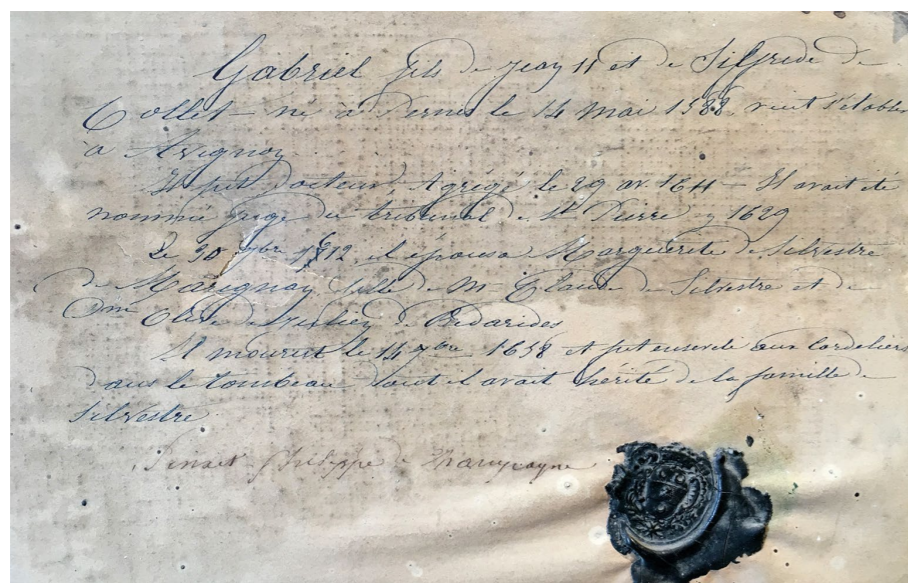 Gabriel fils de Jean II et de Silfrede de
Collet – né à Pernes le 14 mai 1588, vient s'établir
à Avignon.
Il fut docteur, Agrégé le 29 av. 1611 – Il avait été
nommé juge du tribunal de St Pierre en 1629
Le 30 9bre 1612, il épousa Marguerite de Silvestre
de Marignan, fille de Mr Claude de Silvestre et de
Dme Olive de de Bédarides
Il mourut le 14 7bre 1658 et fut enseveli aux Cordeliers
dans le tombeau dont il avait hérité de la famille de
Silvestre.
Philippe de